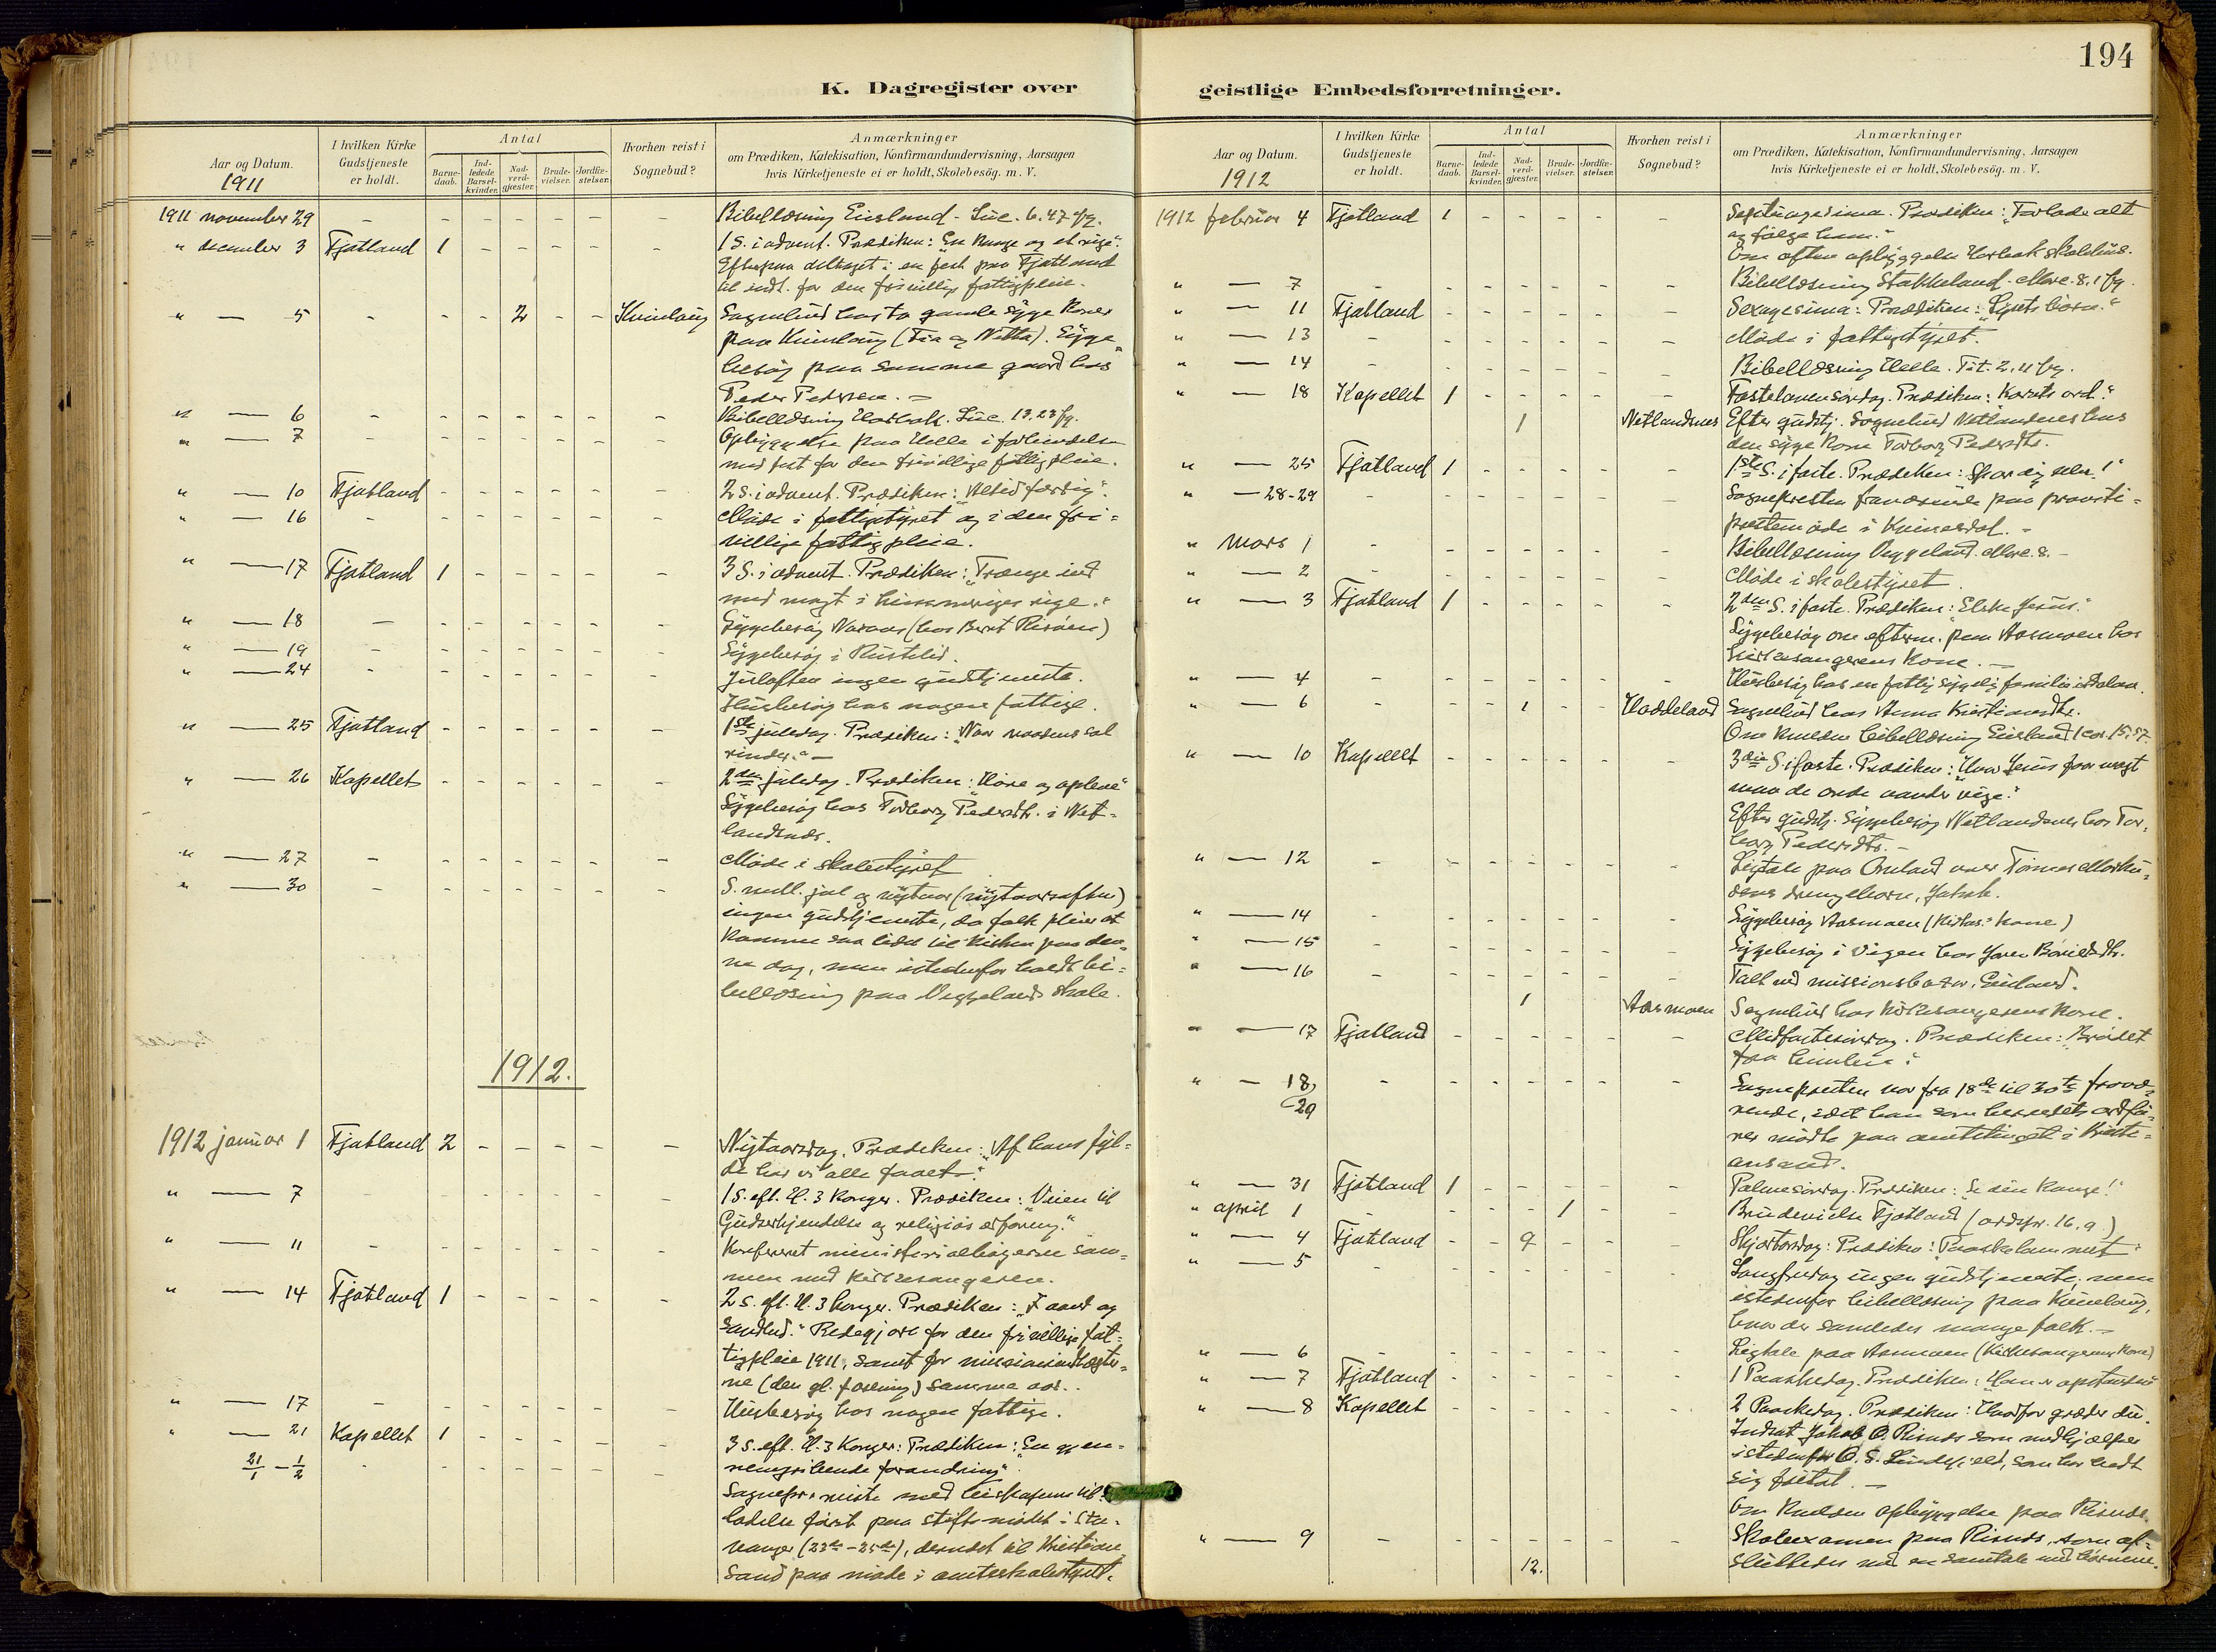 194
K. Dagregister over
Aar og Datum.
1911
I hvilken Kirke
Gudstjeneste
er holdt.
Antal
Barne-
daab.
Ind-
ledede
Barsel-
kvinder.
Nad-
verd-
gjæster.
Brude-
vielser.
Jordfæ-
stelser.
Hvorhen reist i
Sognebud?
Anmærkninger
om Prædiken, Katekisation, Konfirmandundervisning, Aarsagen
hvis Kirketjeneste ei er holdt, Skolebesøg. m. V.
1911 november 29 - - - - - - - Bibellæsning Eiesland - Luc. 6.47 fg.
" december 3 Fjotland 1 - - - - - 1 S. i advent. Prædiken: "En konge og et rige".
Efterpaa deltaget i en fest paa Fjotland
til indt. for den frivillige fattigpleie.
" — 5 - - - 2 - - Kvinlaug Sognebud hos to gamle syge koner
paa Kvinlaug (Tia og Netta). Syge-
besøg paa samme gaard hos
Peder Pedersen. —
" — 6 - - - - - - - Bibellæsning Luc. 13.23 fg.
" — 7 - - - - - - - Opbyggelse paa Helle i forbindelse
med fest for den frivillige fattigpleie.
" — 10 Fjotland - - - - - - 2 S. i advent. Prædiken: "Altid færdig".
" — 16 - - - - - - - Møde i fattigstyret og i den fri=
villige fattigpleie.
" — 17 Fjotland 1 - - - - - 3 S. i advent. Prædiken: "Trænge ind
med magt i himmeriges rige."
" — 18 - - - - - - - Sygebesøg Naraas (hos Berit Risøen)
" — 19 - - - - - - - Sygebesøg i Rustelid.
" — 24 - - - - - - - Juleaften ingen gudstjeneste.
Husbesøg hos nogen fattige.
" — 25 Fjotland - - - - - - 1ste juledag. Prædiken: "Naar naadens sol
rinder." —
" — 26 Kapellet - - - - - - 2den juledag. Prædiken: "Høre og opleve"
Sygebesøg hos Torborg Pedersdtr. i Net-
landsnes.
" — 27 - - - - - - - Møde i skolestyret
" — 30 - - - - - - - S. mell. jul og nytaar (nytaarsaften)
ingen gudstjeneste, da folk pleier at
komme saa lidet til kirken paa den-
ne dag, men istedenfor holdt bi=
bellæsning paa Veggelands skole.
1912.
1912 januar 1 Fjotland 2 - - - - - Nytaarsdag. Prædiken: "Af hans fyl=
de har vi alle faaet."
" — 7 - - - - - - - 1 S. eft. H. 3 konger. Prædiken: "Veien til
Gudserkjendelse og religiøs erfaring."
" — 11 - - - - - - - Konfereret ministerialbøgerne sam=
men med kirkesangeren.
" — 14 Fjotland 1 - - - - - 2 S. eft. H. 3 konger. Prædiken: "I aand og
sandhed." Redegjort for den frivillige fat=
tigpleie 1911, samt for missionsindtægter-
ne (den gl. forening) samme aar.
" — 17 - - - - - - - Husbesøg hos nogen fattige.
" — 21 Kapellet 1 - - - - - 3 S. eft. H. 3 konger: Prædiken: "En gjen-
nemgribende forandring".
21/1 - 1/2 - - - - - - - Sognepr. reiste med biskopens til-
ladelse først paa stiftsmødet i Sta-
vanger (23de-25de), dernæst til Kristian
sand paa møde i amtsskolestyret.
geistlige Embedsforretninger.
Aar og Datum.
1912
I hvilken Kirke
Gudstjeneste
er holdt.
Antal
Barne-
daab.
Ind-
ledede
Barsel-
kvinder.
Nad-
verd-
gjæster.
Brude-
vielser.
Jordfæ-
stelser.
Hvorhen reist i
Sognebud?
Anmærkninger
om Prædiken, Katekisation, Konfirmandundervisning, Aarsagen
hvis Kirketjeneste ei er holdt, Skolebesøg. m. V.
1912 februar 4 Fjotland 1 - - - - - Septuagesima. Prædiken: "Forlade alt
og følge ham."
Om aften opbyggelse skolehus.
" — 7 - - - - - - - Bibellæsning Stakkeland. Marc. 8.1 fg.
" — 11 Fjotland - - - - - - Sexagesima: Prædiken: "Lysets børn."
" — 13 - - - - - - - Møde i fattigstyret.
" — 14 - - - - - - - Bibellæsning Helle. Tit. 2.11 fg.
" — 18 Kapellet 1 - - - - - Fastelavnssøndag. Prædiken: "Korsets ord."
1 Netlandsnes Efter gudstj. sognebud Netlandsnes hos
den syge kone Torborg Pedersdtr.
" — 25 Fjotland 1 - - - - - 1ste S. i faste. Prædiken: "Spar dig selv!"
" — 28-29 - - - - - - - Sognepresten fraværende paa provsti=
prestemøde i Kvinesdal. -
" mars 1 - - - - - - - Bibellæsning Veggeland. Marc. 8. —
" — 2 - - - - - - - Møde i skolestyret.
" — 3 Fjotland 1 - - - - - 2den S. i faste. Prædiken: "Elske Jesus."
Sygebesøg om efterm. paa Aasmoen hos
kirkesangerens kone. —
" — 4 - - - - - - - Husbesøg hos en fattig sygelig familie
" — 6 - - - 1 - - Haddeland Sognebud hos Anna Kristiansdtr.
Om kvelden bibellæsning Eiesland 1 Cor. 15.57
" — 10 Kapellet - - - - - - 3die S. i faste. Prædiken: "Hvor Jesus faar magt
maa de onde aander vige."
Efter gudstj. Sygebesøg Netlandsnes hos Tor-
borg Pedersdtr. —
" — 12 - - - - - - - Ligtale paa Omland over Tønnes
drengebarn, Jakob.
" — 14 - - - - - - - Sygebesøg Aasmoen (kirkes. kone)
" — 15 - - - - - - - Sygebesøg i Vigen hos
" — 16 - - - - - - - Talt ved missionsbazar, Eiesland.
1 Aasmoen Sognebud hos kirkesangerens kone.
" — 17 Fjotland - - - - - - Midfastesøndag. Prædiken: "Brødet
fra himlen."
" — 18,
29 - - - - - - - Sognepresten var fra 18de til 30te fravæ-
rende, idet han som herredets ordfø-
rer mødte paa amtstinget i Kristi=
ansand.
" — 31 Fjotland 1 - - - - - Palmesøndag. Prædiken: "Se din konge!"
" april 1 - - - - 1 - - Brudevielse Fjotland (ordspr. 16.9)
" — 4 Fjotland - - 9 - - - Skjærtorsdag: Prædiken: "Paaskelammet"
" — 5 - - - - - - - Langfredag ingen gudstjeneste; men
istedenfor bibellæsning paa Kvinlaug,
hvor der samledes mange folk. —
" — 6 - - - - - - - Ligtale paa Aasmoen (kirkesangerens kone)
" — 7 Fjotland - - - - - - 1 Paaskedag. Prædiken: "Han er opstanden"
" — 8 Kapellet - - - - - - 2 Paaskedag. Prædiken: "Hvorfor græder du".
Indsat Jakob O. Risnes som medhjælper
istedenfor O. S. Lindefjeld, som har bedt
sig fritat. —
Om kvelden opbyggelse paa Risnes.
" — 9 - - - - - - - Skoleexamen paa Risnes, som af=
12. sluttedes med en samtale med børnene.